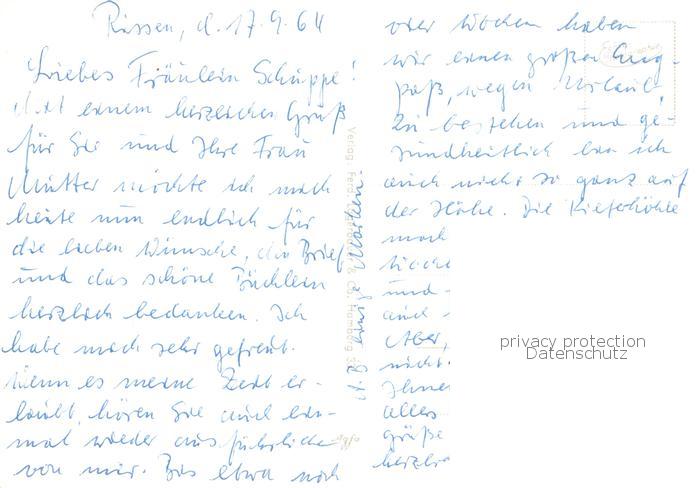 Rissen, d. 17.9.64
Liebes Fräulein Schuppe!
Mit einem herzlichen Gruß
für Sie und Ihre Frau
Mutter möchte ich mich
heute nun endlich für
die lieben Wünsche, den Brief
und das schöne Büchlein
herzlich bedanken. Ich
habe mich sehr gefreut.
Wenn es meine Zeit er-
laubt, hören Sie auch ein-
mal wieder ausführlicher
von mir. Bis etwa noch
Verlag: Ferd.
Hamburg
einige Wochen
oder Wochen haben
wir einen großen Eng-
paß, wegen Urlaub,
zu bestehen und ge-
sundheitlich bin ich
auch nicht so ganz auf
der Höhe. Die Kieferhöhle
mach
Woche
und
auch
Aber,
nicht
Ihnen
alles
grüße
herzlich
privacy protection
Datenschutz